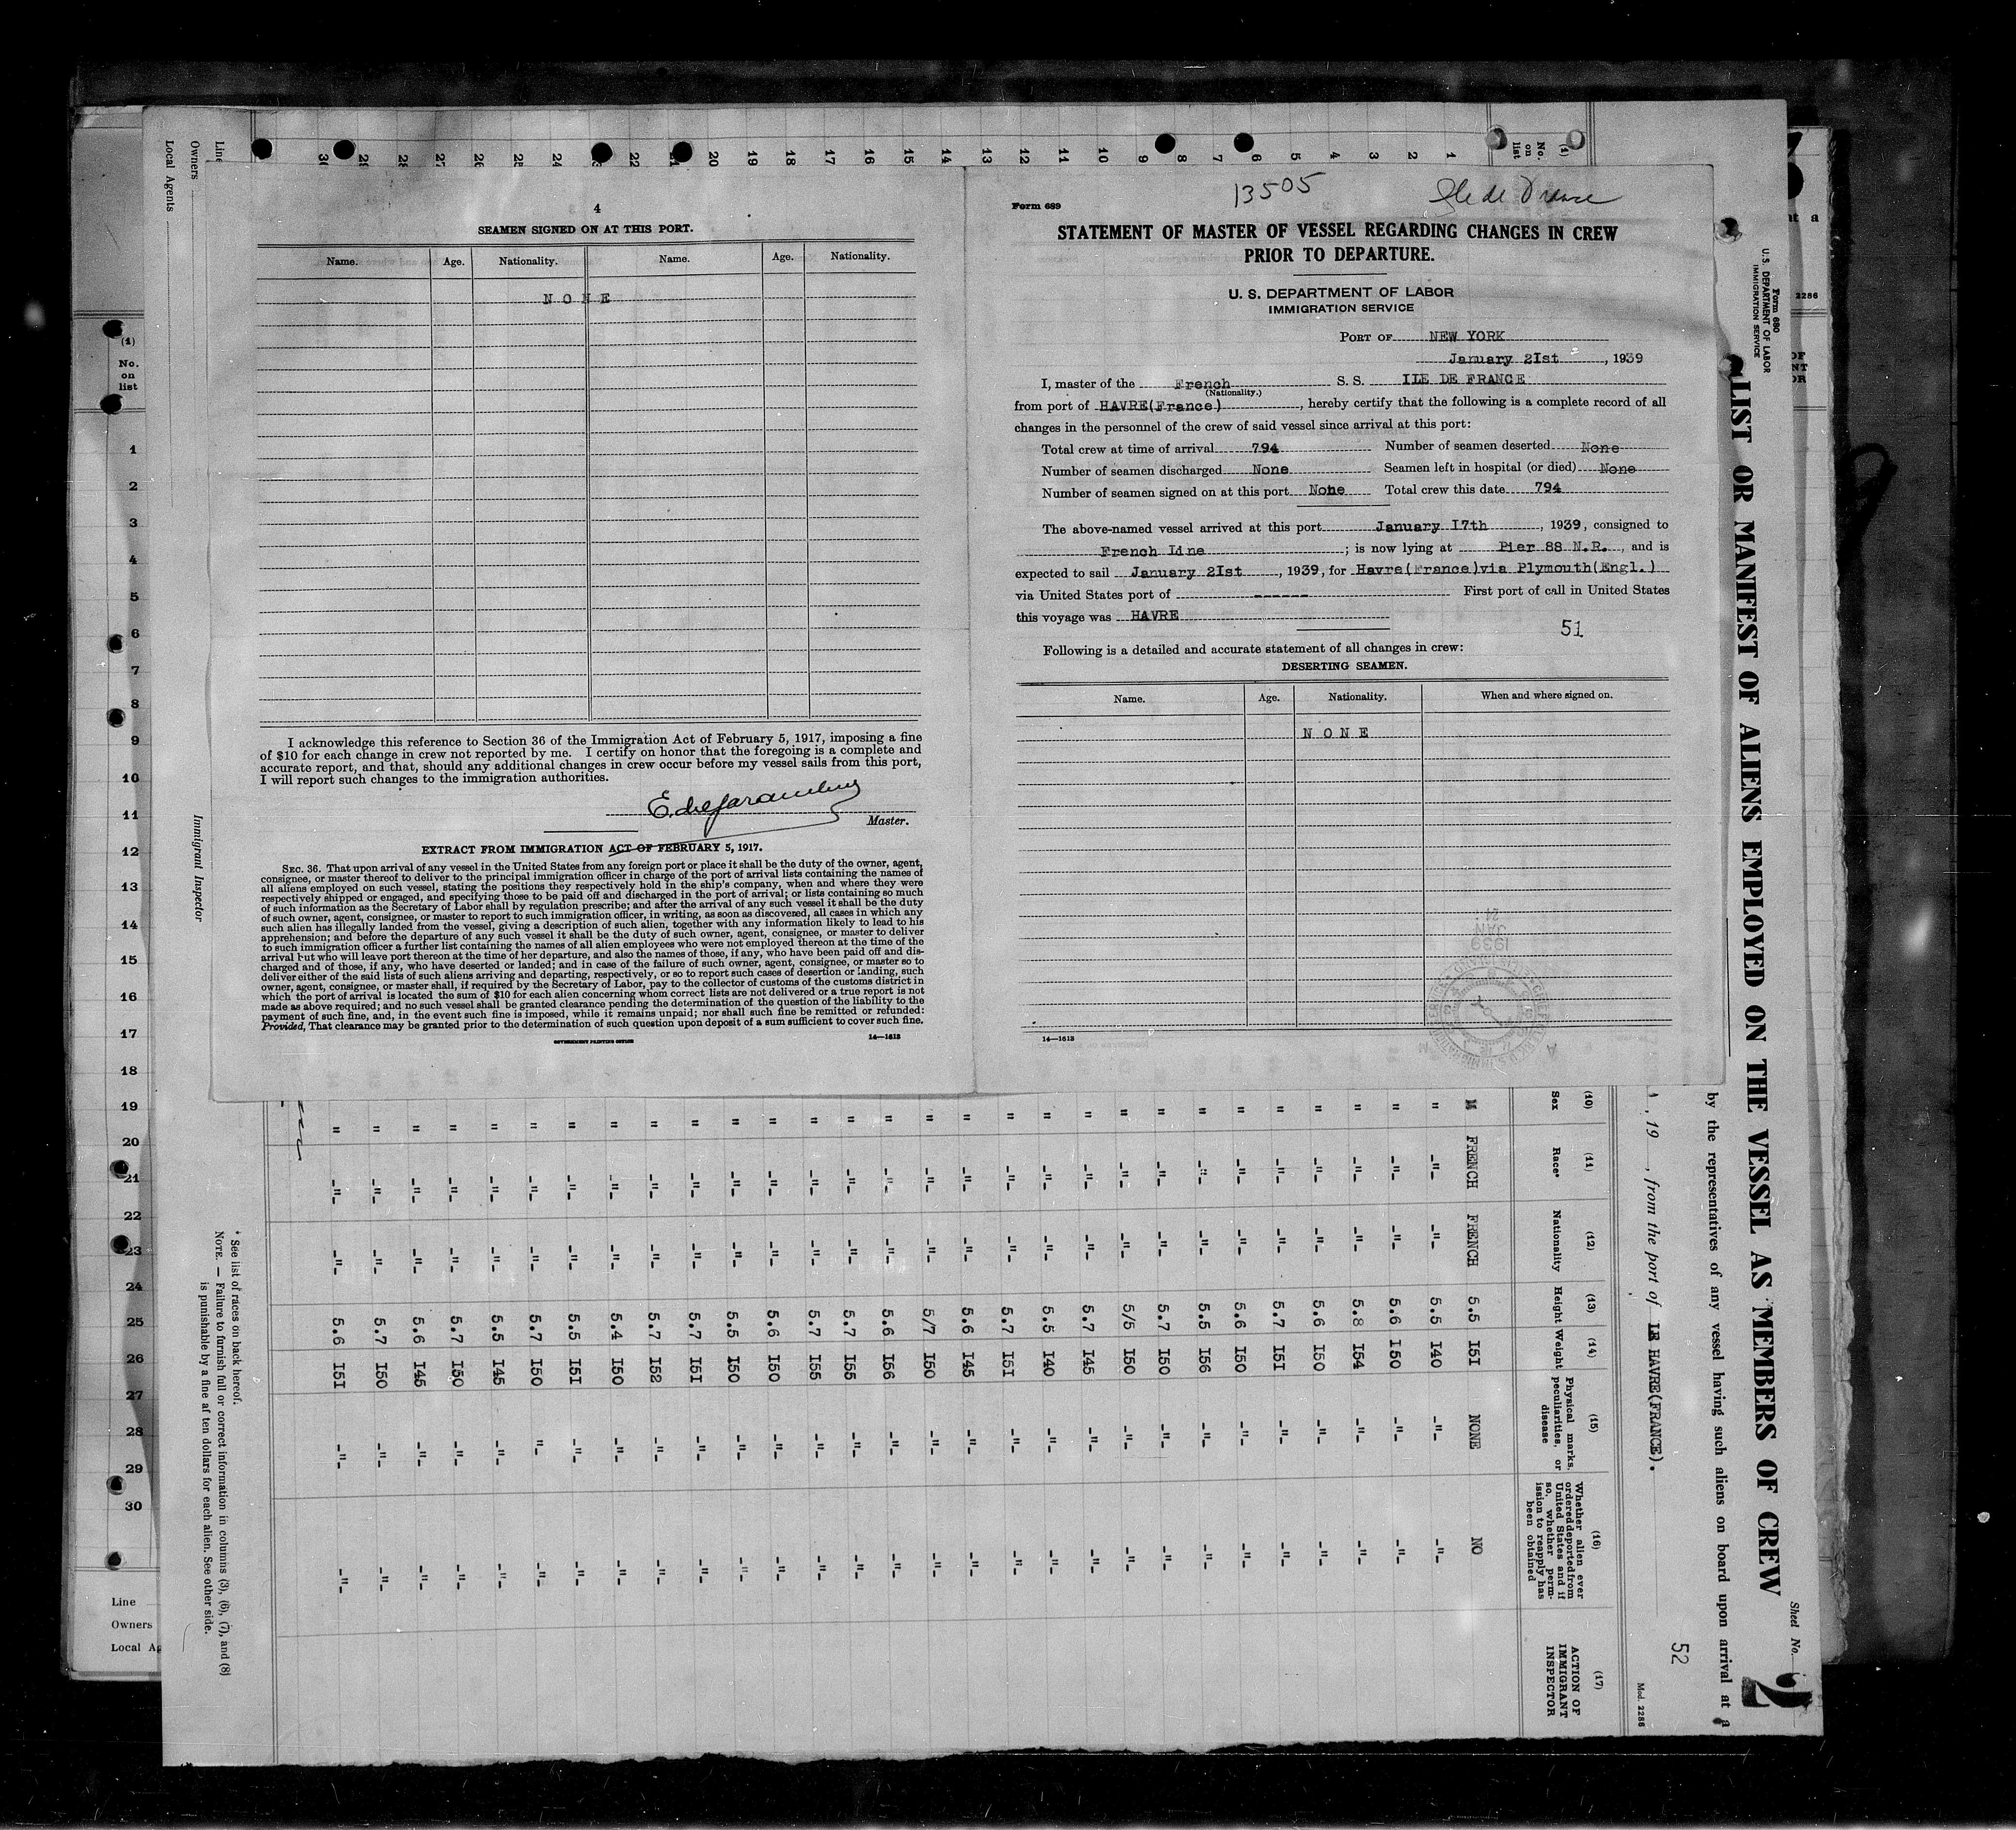 4
SEAMEN SIGNED ON AT THIS PORT.
Name. Age. Nationality. Name. Age. Nationality.
N O N E
I acknowledge this reference to Section 36 of the Immigration Act of February 5, 1917, imposing a fine
of $10 for each change in crew not reported by me. I certify on honor that the foregoing is a complete and
accurate report, and that, should any additional changes in crew occur before my vessel sails from this port,
I will report such changes to the immigration authorities.
Master.
EXTRACT FROM IMMIGRATION ACT OF FEBRUARY 5, 1917.
SEC. 36. That upon arrival of any vessel in the United States from any foreign port or place it shall be the duty of the owner, agent,
consignee, or master thereof to deliver to the principal immigration officer in charge of the port of arrival lists containing the names of
all aliens employed on such vessel, stating the positions they respectively hold in the ship's company, when and where they were
respectively shipped or engaged, and specifying those to be paid off and discharged in the port of arrival; or lists containing so much
of such information as the Secretary of Labor shall by regulation prescribe; and after the arrival of any such vessel it shall be the duty
of such owner, agent, consignee, or master to report to such immigration officer, in writing, as soon as discovered, all cases in which any
such alien has illegally landed from the vessel, giving a description of such alien, together with any information likely to lead to his
apprehension; and before the departure of any such vessel it shall be the duty of such owner, agent, consignee, or master to deliver
to such immigration officer a further list containing the names of all alien employees who were not employed thereon at the time of the
arrival but who will leave port thereon at the time of her departure, and also the names of those, if any, who have been paid off and dis-
charged and of those, if any, who have deserted or landed; and in case of the failure of such owner, agent, consignee, or master so to
deliver either of the said lists of such aliens arriving and departing, respectively, or so to report such cases of desertion or landing, such
owner, agent, consignee, or master shall, if required by the Secretary of Labor, pay to the collector of customs of the customs district in
which the port of arrival is located the sum of $10 for each alien concerning whom correct lists are not delivered or a true report is not
made as above required; and no such vessel shall be granted clearance pending the determination of the question of the liability to the
payment of such fine, and, in the event such fine is imposed, while it remains unpaid; nor shall such fine be remitted or refunded:
Provided, That clearance may be granted prior to the determination of such question upon deposit of a sum sufficient to cover such fine.
GOVERNMENT PRINTING OFFICE 14—1613
13505 Ile de France
Form 689
STATEMENT OF MASTER OF VESSEL REGARDING CHANGES IN CREW
PRIOR TO DEPARTURE.
U. S. DEPARTMENT OF LABOR
IMMIGRATION SERVICE
PORT OF NEW YORK
January 2Ist, 1939
I, master of the French S. S. ILE DE FRANCE
(Nationality.)
from port of HAVRE(France), hereby certify that the following is a complete record of all
changes in the personnel of the crew of said vessel since arrival at this port:
Total crew at time of arrival 794 Number of seamen deserted None
Number of seamen discharged None Seamen left in hospital (or died) None
Number of seamen signed on at this port None Total crew this date 794
The above-named vessel arrived at this port January I7th, 1939, consigned to
French Line; is now lying at Pier 88 N.R., and is
expected to sail January 2Ist, 1939, for Havre(France)via Plymouth(Engl.)
via United States port of ------ First port of call in United States
this voyage was HAVRE
51
Following is a detailed and accurate statement of all changes in crew:
DESERTING SEAMEN.
Name. Age. Nationality. When and where signed on.
N O N E
14—1613
JAN
1939
Form 680
U. S. DEPARTMENT OF LABOR
IMMIGRATION SERVICE
LIST OR MANIFEST OF ALIENS EMPLOYED ON THE VESSEL AS MEMBERS OF CREW
Sheet No. 2
by the representatives of any vessel having such aliens on board upon arrival at a
, 19 , from the port of LE HAVRE(FRANCE).
52
Mod. 2286
(1) No. on list
(10) Sex
(11) Race*
(12) Nationality
(13) Height
(14) Weight
(15) Physical marks, peculiarities, or disease
(16) Whether alien ever ordered deported from United States and if so, whether permission to reapply has been obtained
(17) ACTION OF IMMIGRANT INSPECTOR
1 M FRENCH FRENCH 5.5 I5I NONE NO
2 " -"- -"- 5.5 I40 -"- -"-
3 " -"- -"- 5.6 I50 -"- -"-
4 " -"- -"- 5.8 I54 -"- -"-
5 " -"- -"- 5.6 I50 -"- -"-
6 " -"- -"- 5.7 I5I -"- -"-
7 " -"- -"- 5.6 I50 -"- -"-
8 " -"- -"- 5.5 I56 -"- -"-
9 " -"- -"- 5.7 I50 -"- -"-
10 " -"- -"- 5/5 I50 -"- -"-
11 " -"- -"- 5.7 I45 -"- -"-
12 " -"- -"- 5.5 I40 -"- -"-
13 " -"- -"- 5.7 I5I -"- -"-
14 " -"- -"- 5.6 I45 -"- -"-
15 " -"- -"- 5/7 I50 -"- -"-
16 " -"- -"- 5.6 I56 -"- -"-
17 " -"- -"- 5.7 I55 -"- -"-
18 " -"- -"- 5.7 I55 -"- -"-
19 " -"- -"- 5.6 I50 -"- -"-
20 " -"- -"- 5.5 I50 -"- -"-
21 " -"- -"- 5.7 I5I -"- -"-
22 " -"- -"- 5.7 I52 -"- -"-
23 " -"- -"- 5.4 I50 -"- -"-
24 " -"- -"- 5.5 I5I -"- -"-
25 " -"- -"- 5.7 I50 -"- -"-
26 " -"- -"- 5.5 I45 -"- -"-
27 " -"- -"- 5.7 I50 -"- -"-
28 " -"- -"- 5.6 I45 -"- -"-
29 " -"- -"- 5.7 I50 -"- -"-
30 " -"- -"- 5.6 I5I -"- -"-
Line
Owners
Local Agents
Immigrant Inspector
* See list of races on back hereof.
NOTE. — Failure to furnish full or correct information in columns (3), (6), (7), and (8)
is punishable by a fine af ten dollars for each alien. See other side.
(1)
No.
on
list
1
2
3
4
5
6
7
8
9
10
11
12
13
14
15
16
17
18
19
20
21
22
23
24
25
26
27
28
29
30
Line
Owners
Local Ag
2286